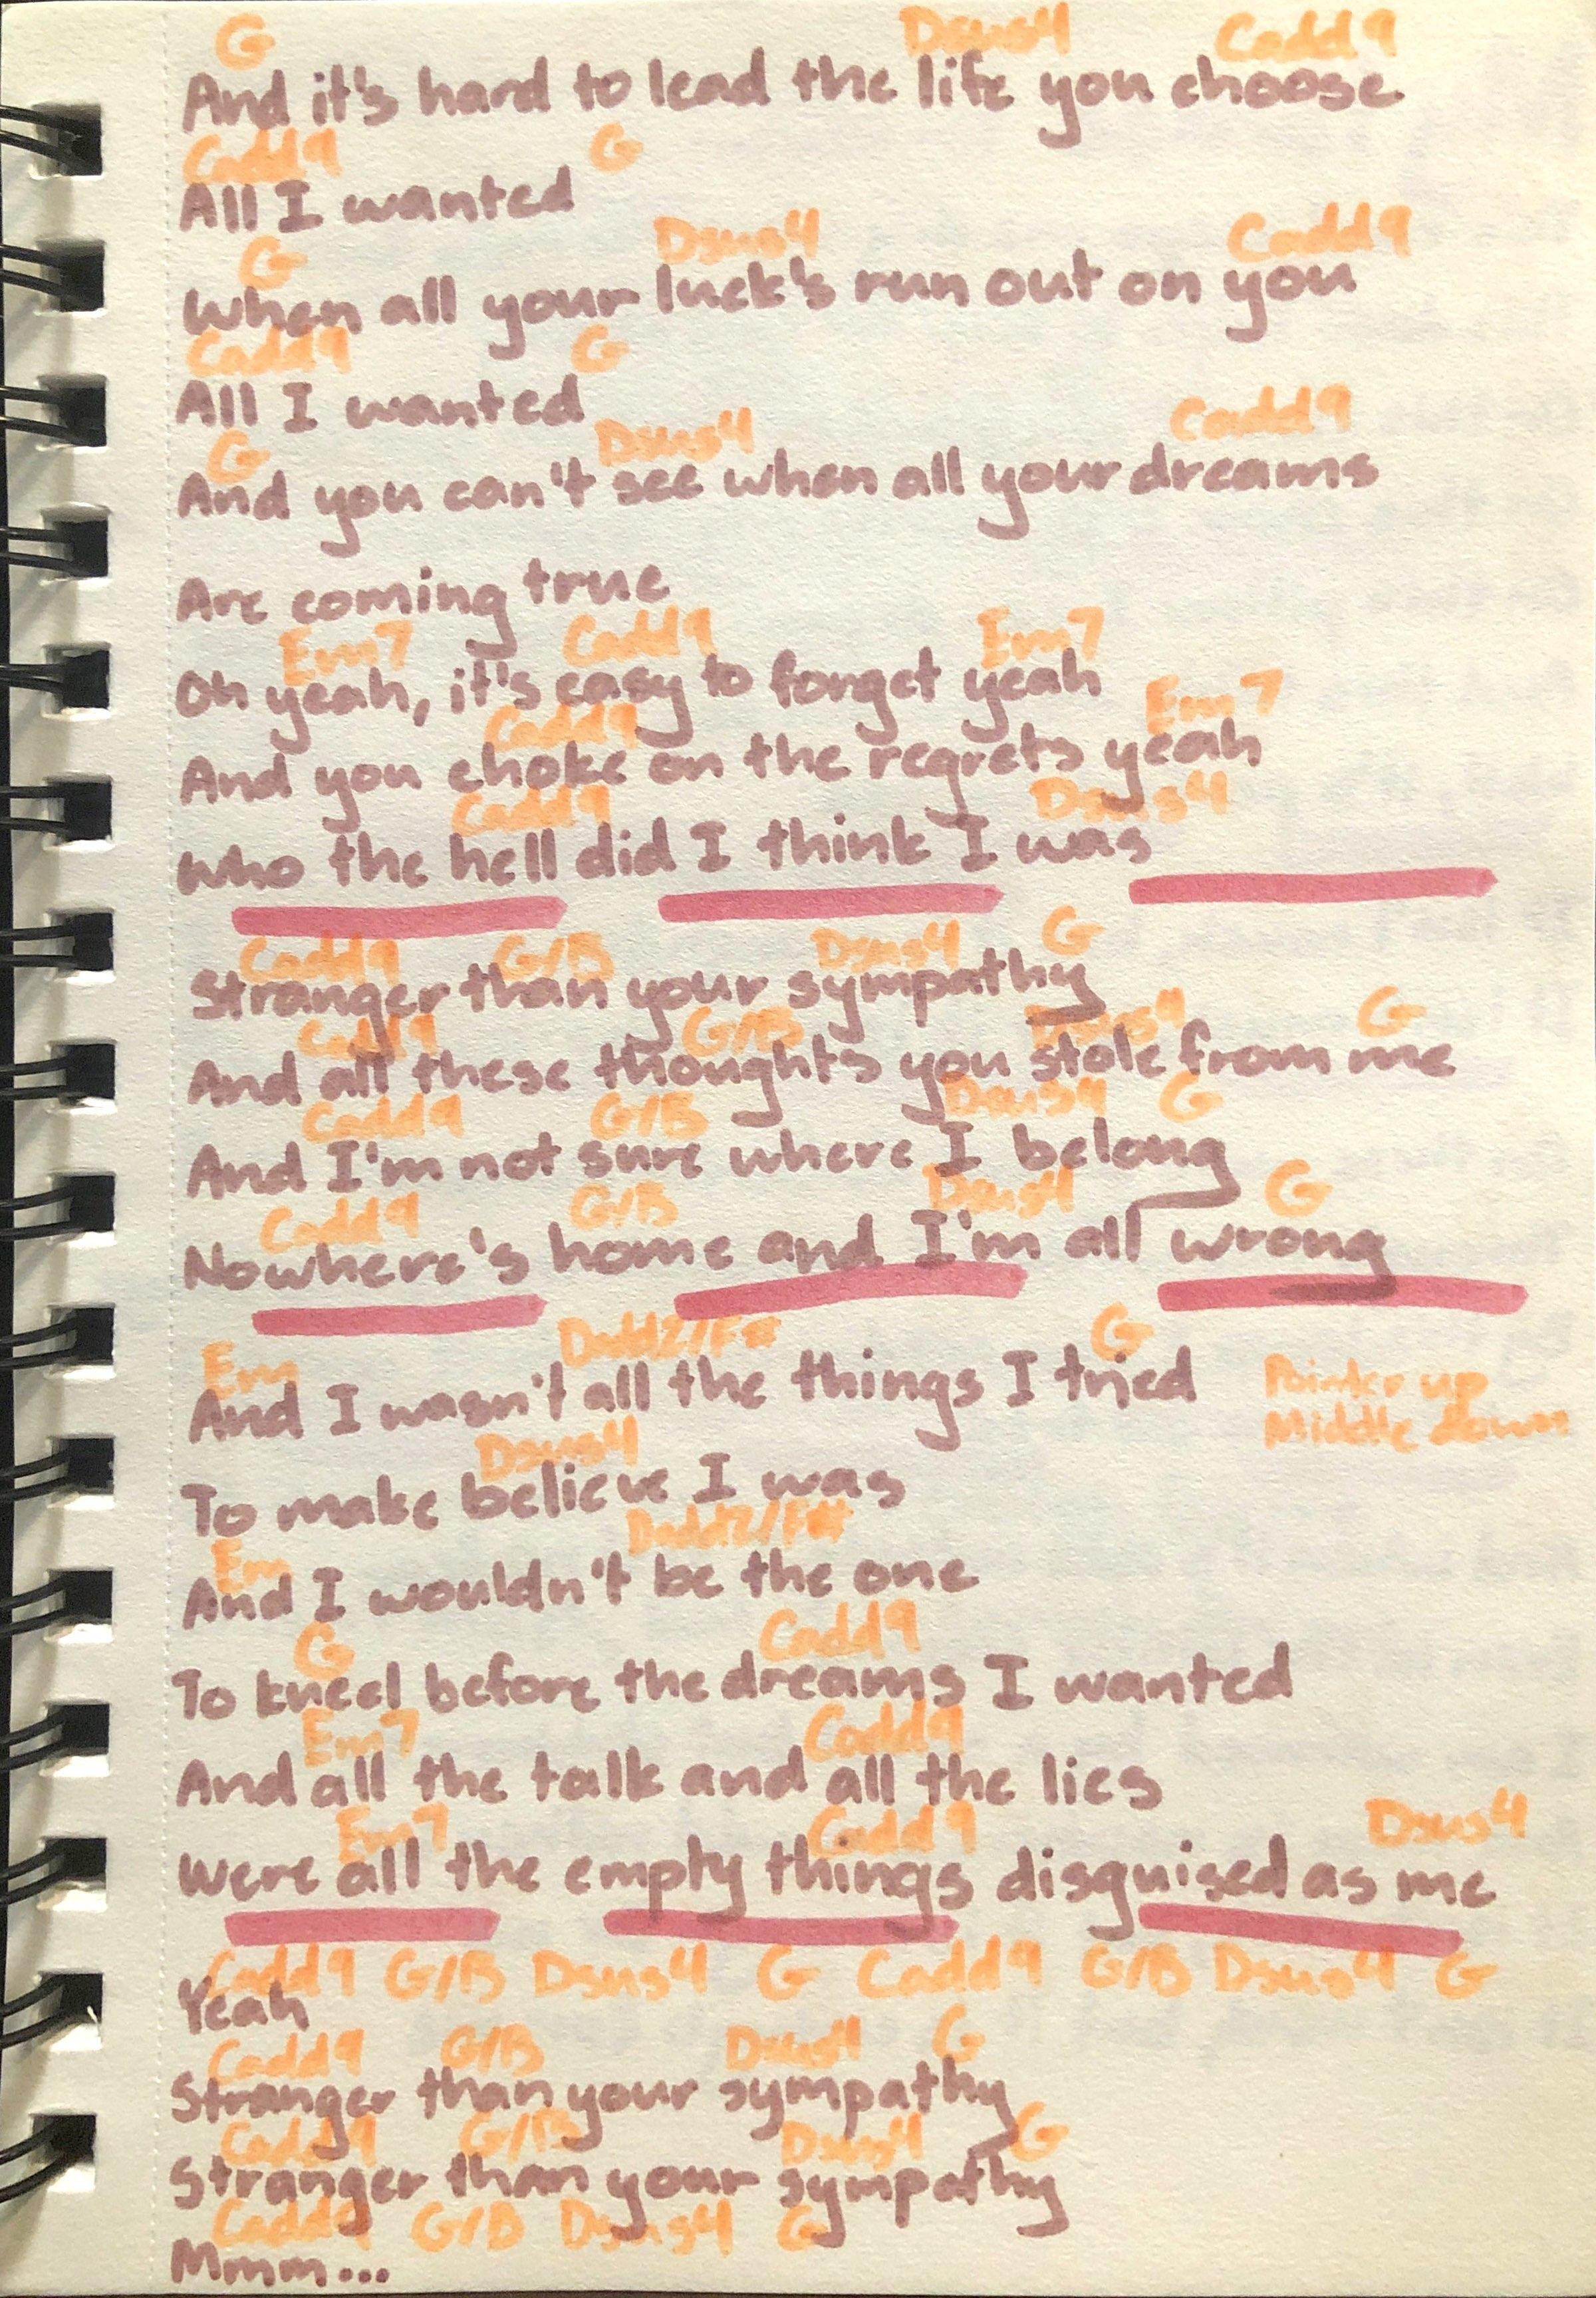 G Dsus4 Cadd9
And it's hard to lead the life you choose
Cadd9 G
All I wanted
G Dsus4 Cadd9
When all your luck's run out on you
Cadd9 G
All I wanted
G Dsus4 Cadd9
And you can't see when all your dreams
Are coming true
Em7 Cadd9 Em7
Oh yeah, it's easy to forget yeah
Cadd9 Em7
And you choke on the regrets yeah
Cadd9 Dsus4
Who the hell did I think I was
Cadd9 G/B Dsus4 G
Stranger than your sympathy
Cadd9 G/B Dsus4 G
And all these thoughts you stole from me
Cadd9 G/B Dsus4 G
And I'm not sure where I belong
Cadd9 G/B Dsus4 G
Nowhere's home and I'm all wrong
Em Dadd2/F# G
And I wasn't all the things I tried
Pointer up
Middle down
Dsus4
To make believe I was
Em Dadd2/F#
And I wouldn't be the one
G Cadd9
To kneel before the dreams I wanted
Em7 Cadd9
And all the talk and all the lies
Em7 Cadd9 Dsus4
Were all the empty things disguised as me
Cadd9 G/B Dsus4 G Cadd9 G/B Dsus4 G
Yeah
Cadd9 G/B Dsus4 G
Stranger than your sympathy
Cadd9 G/B Dsus4 G
Stranger than your sympathy
Cadd9 G/B Dsus4 G
Mmm...